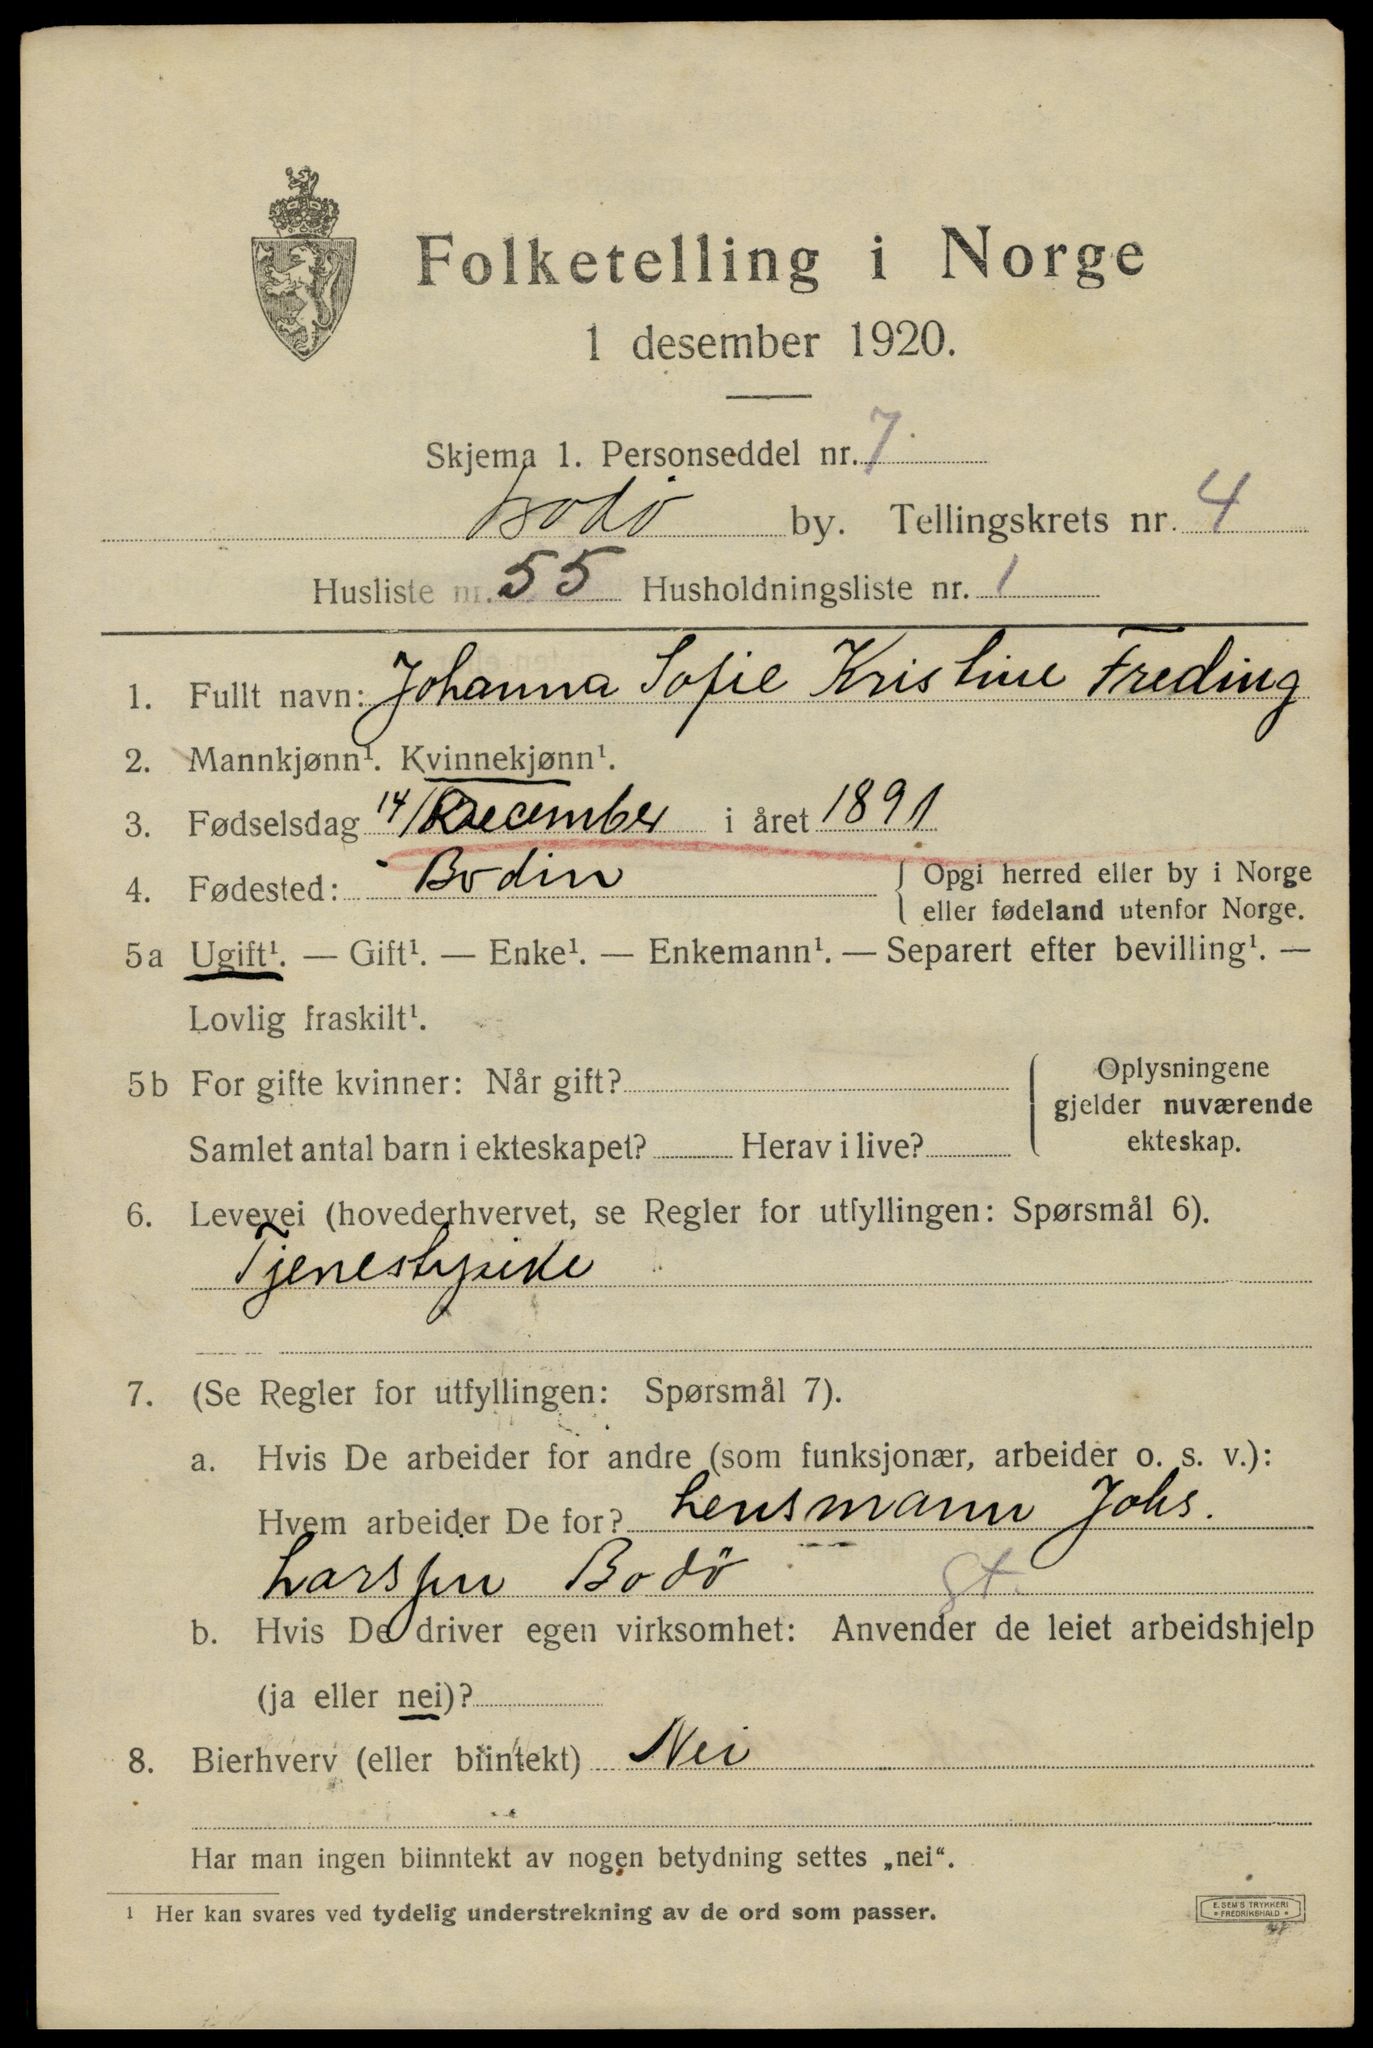 Folketelling i Norge
1 desember 1920.
Skjema 1. Personseddel nr. 7.
Bodø by. Tellingskrets nr. 4
Husliste nr. 55 Husholdningsliste nr. 1
1. Fullt navn: Johanna Sofie Kristine Freding
2. Mannkjønn¹. Kvinnekjønn¹.
3. Fødselsdag 14/December i året 1891
4. Fødested: Bodin { Opgi herred eller by i Norge
eller fødeland utenfor Norge.
5a Ugift¹. — Gift¹. — Enke¹. — Enkemann¹. — Separert efter bevilling¹. —
Lovlig fraskilt¹.
5b For gifte kvinner: Når gift? { Oplysningene
gjelder nuværende
ekteskap.
Samlet antal barn i ekteskapet? Herav i live?
6. Levevei (hovederhvervet, se Regler for utfyllingen: Spørsmål 6).
Tjenestypike
7. (Se Regler for utfyllingen: Spørsmål 7).
a. Hvis De arbeider for andre (som funksjonær, arbeider o. s. v.):
Hvem arbeider De for? Lensmann Johs.
Larssen Bodö gt.
b. Hvis De driver egen virksomhet: Anvender de leiet arbeidshjelp
(ja eller nei)?
8. Bierhverv (eller biintekt) Nei
Har man ingen biinntekt av nogen betydning settes „nei“.
1 Her kan svares ved tydelig understrekning av de ord som passer.
E. SEM'S TRYKKERI
• FREDRIKSHALD •